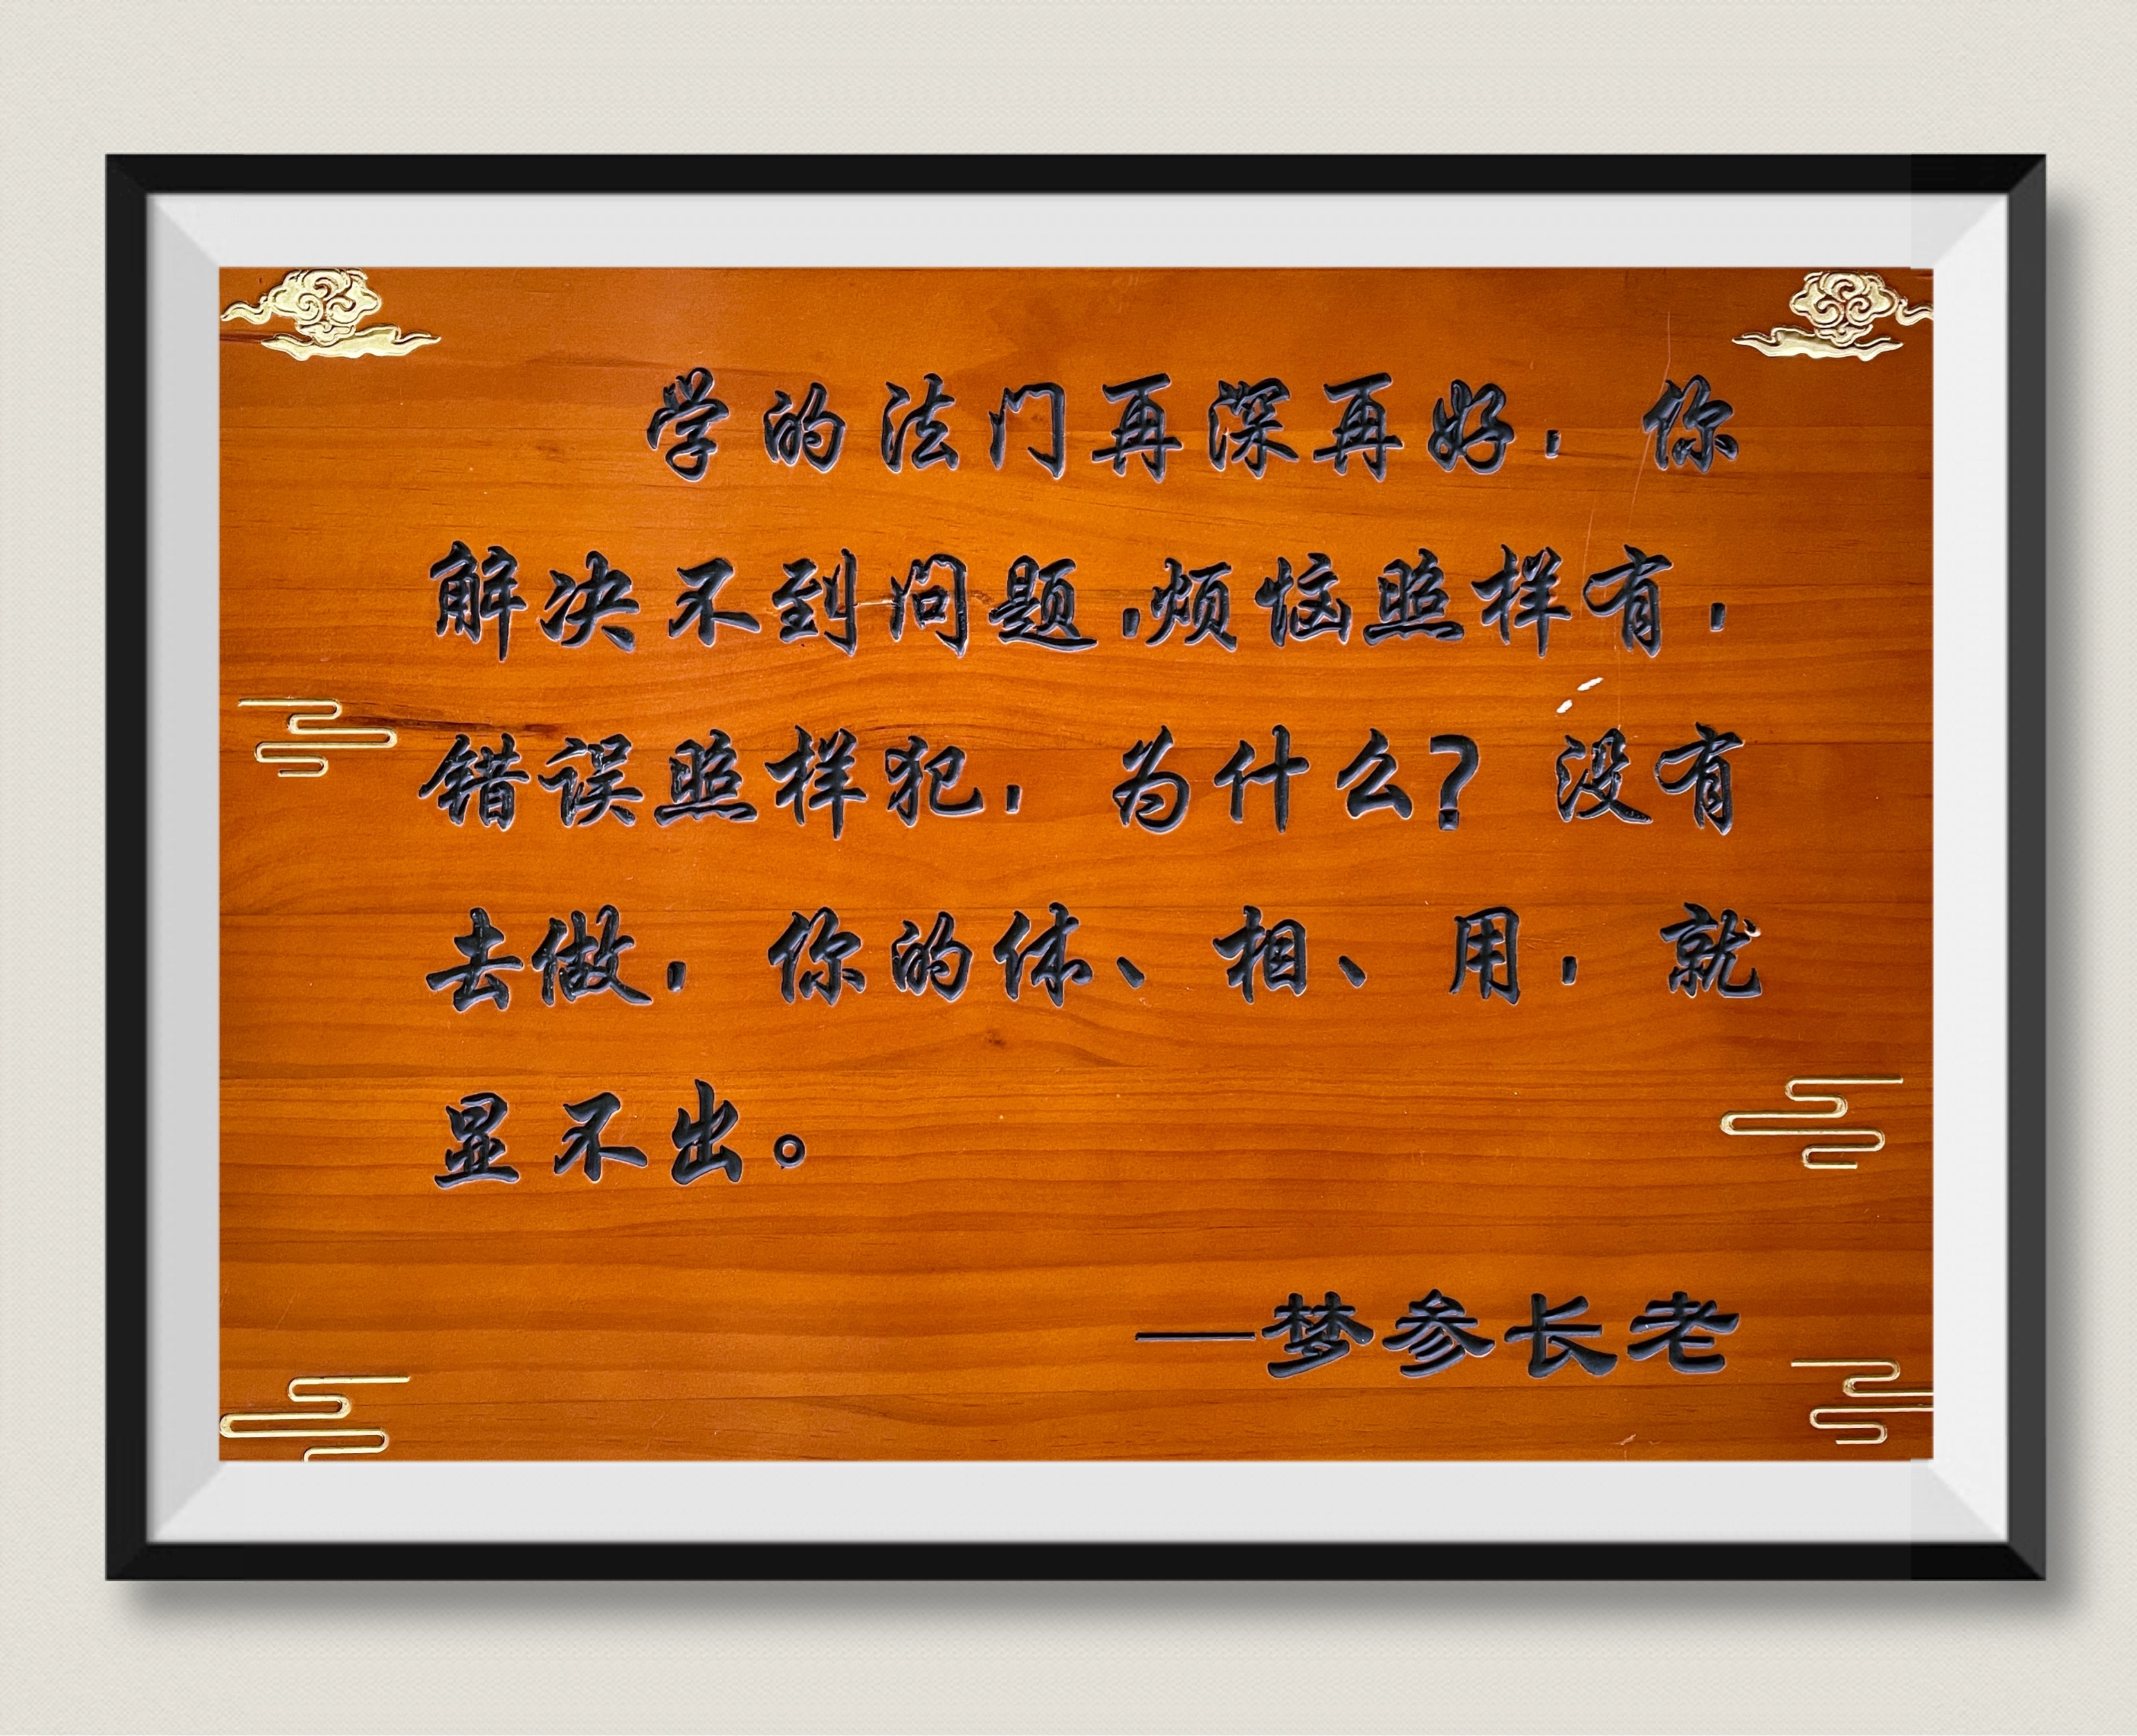 学的法门再深再好，你
解决不到问题，烦恼照样有，
错误照样犯，为什么？没有
去做，你的体、相、用，就
显不出。
——梦参长老